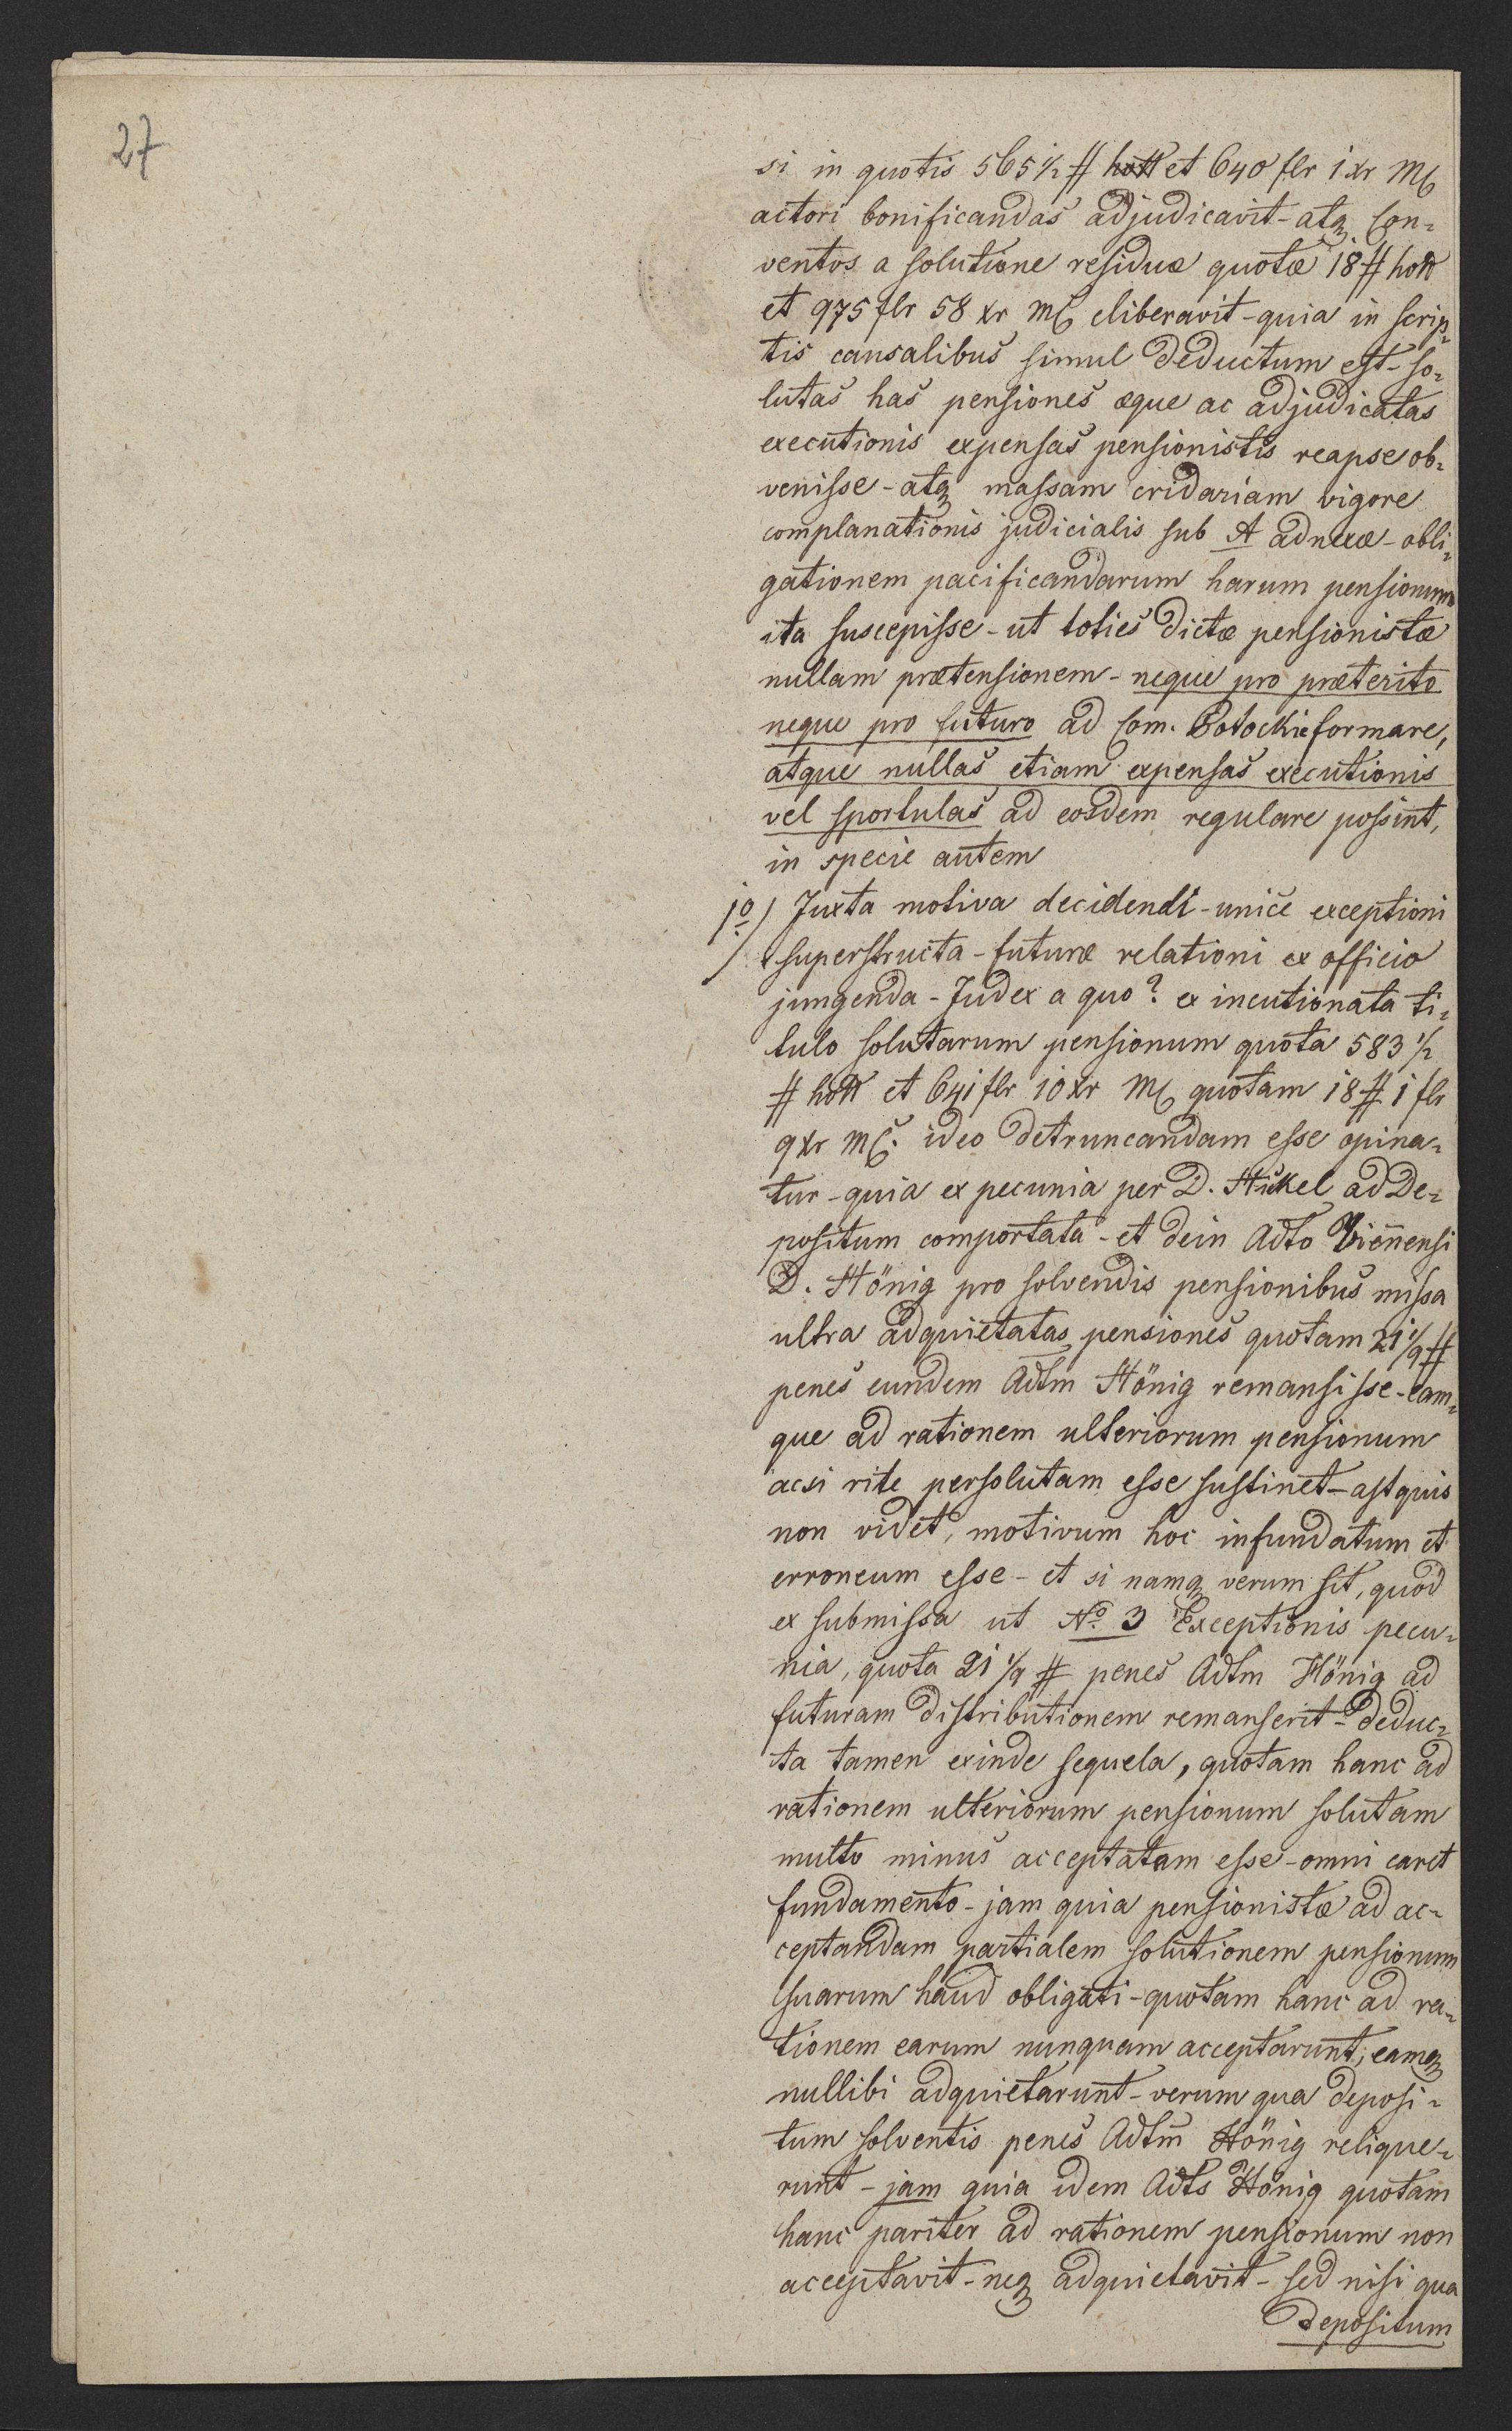 27
si in quotis 565½ # holl et 640 flr 1 xr MC
actori bonificandas adjudicavit - atq Con-
ventos a solutione residuæ quotæ 18 # holl
et 975 flr 58 xr MC eliberavit - quia in scrip-
tis causalibus simul deductum est - so-
lutas has pensiones æque ac adjudicatas
executionis expensas pensionistis reapse ob-
venisse - atq massam cridariam vigore
complanationis judicialis sub A adnexæ - obli-
gationem pacificandarum harum pensionum
ita suscepisse - ut toties dictæ pensionistæ
nullam prætensionem - neque pro præterito
neque pro futuro ad Com. Potockie formare,
atque nullas etiam expensas executionis
vel sportulas ad eosdem regulare possint,
in specie autem
1º) Juxta motiva decidendi - unice exceptioni
superstructa - futuræ relationi ex officio
jungenda - Judex a quo? ex incutionata ti-
tulo solutarum pensionum quota 583 ½
# holl et 641 flr 10 xr MC quotam 18 # 1 flr
9 xr MC. ideo detruncandam esse opina-
tur - quia ex pecunia per D. Hickel ad De-
positum comportata - et dein Adto Viennensi
D. Hönig pro solvendis pensionibus missa
ultra adquietatas pensiones quotam 21 1/9 #
penes eundem Adtm Hönig remansisse - eam-
que ad rationem ulteriorum pensionum
acsi rite persolutam esse sustinet - ast quis
non videt, motivum hoc infundatum et
erroneum esse - et si namq verum sit, quod
ex submissa ut No. 3 Exceptionis pecu-
nia, quota 21 1/9 # penes Adtm Hönig ad
futuram distributionem remanserit - deduc-
ta tamen exinde sequela, quotam hanc ad
rationem ulteriorum pensionum solutam
multo minus acceptatam esse - omni caret
fundamento - jam quia pensionistæ ad ac-
ceptandam partialem solutionem pensionum
suarum haud obligati - quotam hanc ad ra-
tionem earum nunquam acceptarunt, eamq
nullibi adquietarunt - verum qua deposi-
tum solventis penes Adtm Hönig relique-
runt - jam quia idem Adts Hönig quotam
hanc pariter ad rationem pensionum non
acceptavit - neq adquietavit - sed nisi qua
depositum